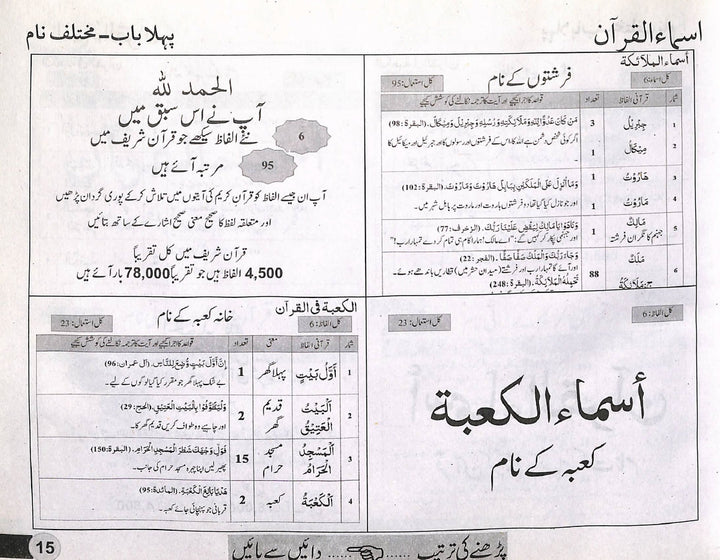 اسماء القرآن
پہلا باب - مختلف نام
أسماء الملائكة
فرشتوں کے نام
کل اسماء: 6
کل استعمال: 95
شمار
قرآنی الفاظ
تعداد
قواعد کا اجرا کیجیے اور آیت کا ترجمہ نکالنے کی کوشش کیجیے
1
جِبْرِيْل
3
مَن كَانَ عَدُوًّا لِلّٰهِ وَمَلَائِكَتِهِ وَرُسُلِهِ وَجِبْرِيْلَ وَمِيْكَالَ. (البقرة: 98)
اگر کوئی شخص دشمن ہے اللہ کا اس کے فرشتوں اور رسولوں کا اور جبرئیل اور میکائیل کا
2
مِيْكَال
1
3
هَارُوْتُ
1
وَمَا أُنْزِلَ عَلَى الْمَلَكَيْنِ بِبَابِلَ هَارُوْتَ وَمَارُوْتَ. (البقرة: 102)
اور جو نازل کیا گیا تھا دو فرشتوں ہاروت اور ماروت پر بابل شہر میں۔
4
مَارُوْتُ
1
5
مَالِكٌ
جہنم کا نگران فرشتہ
1
وَنَادَوْا يَا مَالِكُ لِيَقْضِ عَلَيْنَا رَبُّكَ. (الزخرف: 77)
اور جہنمی پکار کر کہیں گے: "اے مالک! ہمارا کام ہی تمام کردے تمہارا رب!"
6
مَلَكٌ
ج: مَلَائِكَةٌ
88
وَجَاءَ رَبُّكَ وَالْمَلَكُ صَفًّا صَفًّا. (الفجر: 22)
اور آئے گا تمہارا رب اور فرشتے (میدان حشر میں) قطاریں باندھے ہوئے۔
تَحْمِلُهُ الْمَلَائِكَةُ. (البقرة: 248)
الحمد للہ
آپ نے اس سبق میں
6
نئے الفاظ سیکھے جو قرآن شریف میں
95
مرتبہ آئے ہیں
آپ ان جیسے الفاظ کو قرآن کریم کی آیتوں میں تلاش کرکے پوری گردان پڑھیں
اور متعلقہ لفظ کا صحیح معنی صحیح اشارے کے ساتھ بتائیں
قرآن شریف میں کل تقریباً
4,500 الفاظ ہیں جو تقریباً 78,000 بار آئے ہیں
کل الفاظ: 6
کل استعمال: 23
أسماء الكعبة
کعبہ کے نام
الكعبة في القرآن
خانہ کعبہ کے نام
کل الفاظ: 6
کل استعمال: 23
شمار
قرآنی الفاظ
معنی
تعداد
قواعد کا اجرا کیجیے اور آیت کا ترجمہ نکالنے کی کوشش کیجیے
1
أَوَّلُ بَيْتٍ
پہلا گھر
1
إِنَّ أَوَّلَ بَيْتٍ وُضِعَ لِلنَّاسِ. (آل عمران: 96)
بے شک پہلا گھر جو مقرر کیا گیا لوگوں کے لیے۔
2
اَلْبَيْتُ الْعَتِيْقُ
قدیم گھر
2
وَلْيَطَّوَّفُوْا بِالْبَيْتِ الْعَتِيْقِ. (الحج: 29)
اور چاہیے وہ طواف کریں قدیم گھر کا۔
3
اَلْمَسْجِدُ الْحَرَامُ
مسجد حرام
15
فَوَلِّ وَجْهَكَ شَطْرَ الْمَسْجِدِ الْحَرَامِ. (البقرة: 150)
پھیر لیں اپنا چہرہ مسجد حرام کی جانب۔
4
اَلْكَعْبَةُ
کعبہ
2
هَدْيًا بَالِغَ الْكَعْبَةِ. (المائدة: 95)
قربانی جو پہنچائی جائے کعبہ۔
15
پڑھنے کی ترتیب دائیں سے بائیں